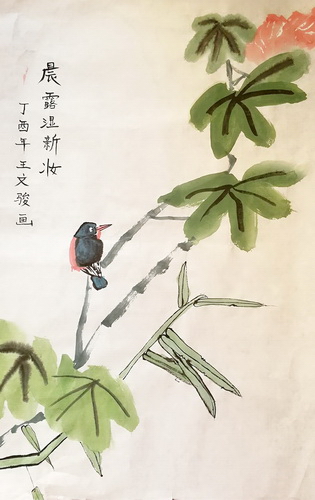 晨露湿新妆
丁酉年王文骏画